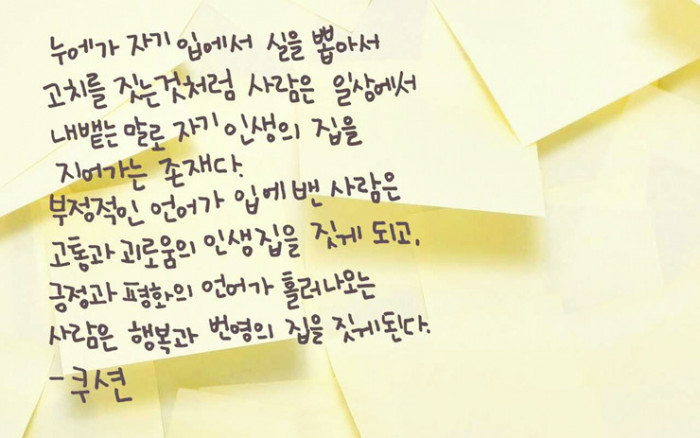 누에가 자기 입에서 실을 뽑아서
고치를 짓는것처럼 사람은 일상에서
내뱉는 말로 자기 인생의 집을
지어가는 존재다.
부정적인 언어가 입에 밴 사람은
고통과 괴로움의 인생집을 짓게 되고,
긍정과 평화의 언어가 흘러나오는
사람은 행복과 번영의 집을 짓게된다.
- 쿠션